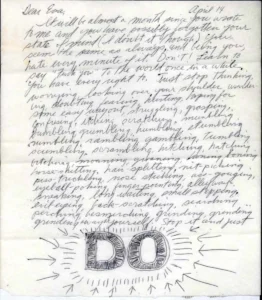 Dear Eva, April 14
It will be almost a month since you wrote
to me and you have possibly forgotten your
state of mind (I doubt it though). You
seem the same as always, and being you,
hate every minute of it. Don't! Learn to
say "Fuck You" to the world once in a while.
You have every right to. Just stop thinking,
worrying, looking over your shoulder, wondering,
doubting, fearing, hurting, hoping for
some easy way out, struggling, grasping,
confusing, itching, scratching, mumbling,
bumbling, grumbling, humbling, stumbling,
rumbling, rambling, gambling, tumbling,
scumbling, scrambling, hitching, hatching,
bitching, moaning, groaning, honing, boning,
horse-shitting, hair-splitting, nit-picking,
piss-trickling, nose sticking, ass-gouging,
eyeball-poking, finger-pointing, alleyway-
sneaking, long waiting, small stepping,
evil-eyeing, back-scratching, searching,
perching, besmirching, grinding, grinding
grinding away at yourself. Stop it and just
DO